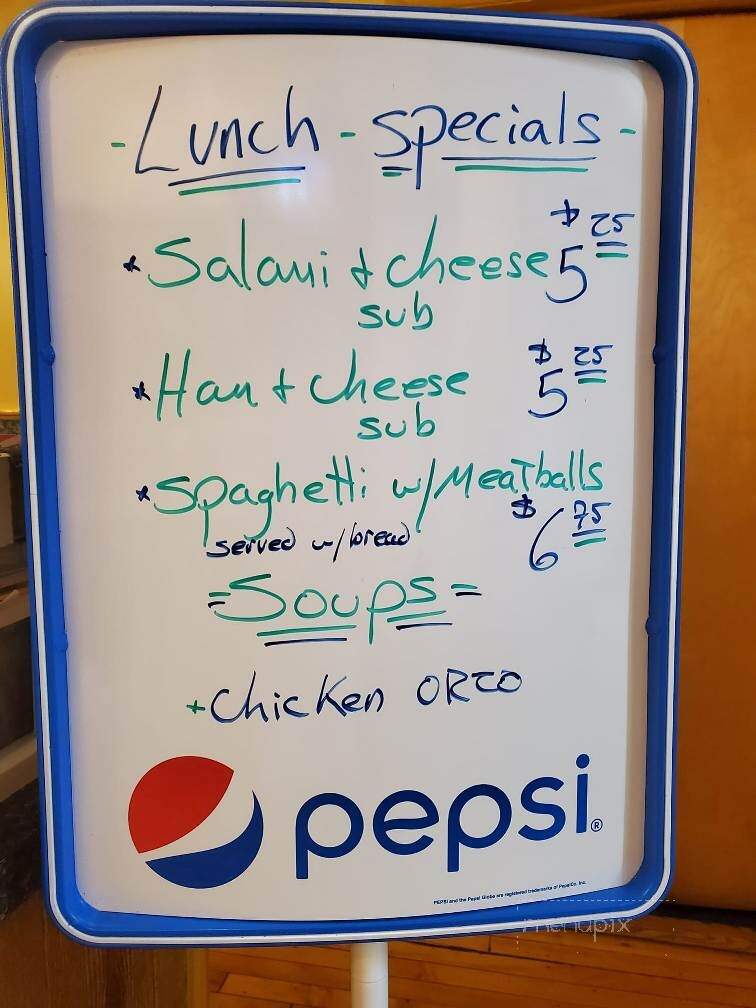 - Lunch - specials -
* Salami + cheese $5 25
sub
* Ham + cheese $5 25
sub
* Spaghetti w/ MeaTballs
served w/ bread $6 75
= Soups =
+ Chicken ORZO
pepsi®
PEPSI and the Pepsi Globe are registered trademarks of PepsiCo, Inc.
menupix